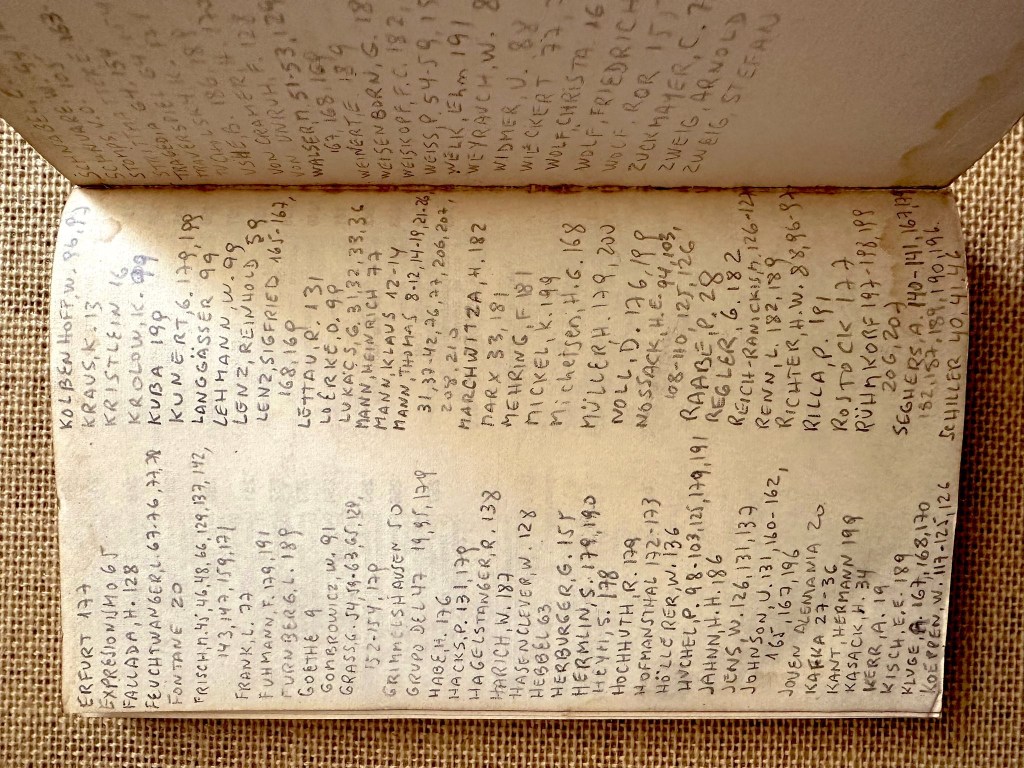 ERFURT 177
EXPRESIONISMO 65
FALLADA H. 128
FEUCHTWANGER L. 67-76, 77, 78
FONTANE 20
FRISCH, M. 45, 46, 48, 66, 129, 137, 142,
143, 147, 159, 171
FRANK, L. 77
FUHMANN, F. 179, 191
FURNBERG, L. 189
GOETHE 9
GOMBROWICZ, W. 91
GRASS, G. 54, 59-63, 65, 129,
152-154, 170
GRIMMELSHAUSEN 50
GRUPO DEL 47 19, 95, 179
HABE, H. 176
HACKS, P. 131, 179
HAGELSTANGER, R. 138
HARICH, W. 187
HASENCLEVER, W. 128
HEBBEL 63
HERBURGER G. 155
HERMLIN, S. 179, 190
HEYM, S. 178
HOCHHUTH, R. 179
HOFMANSTHAL 172-173
HÖLLERER, W. 136
HUCHEL, P. 98-103, 125, 179, 191
JAHNN, H. H. 186
JENS W. 126, 131, 137
JOHNSON, U. 131, 160-162,
165, 167, 196
JOVEN ALEMANIA 20
KAFKA 27-36
KANT HERMANN 199
KASACK, H. 34
KERR, A. 19
KISCH, E. E. 189
KLUGE, A. 167, 168, 170
KOEPPEN, W. 117-125, 126
KOLBENHOFF W. 96, 97
KRAUS, K. 13
KRISTLEIN 16
KROLOW, K. 99
KUBA 190
KUNERT, G. 179, 199
LANGGÄSSER 99
LEHMANN, W. 99
LENZ, REINHOLD 59
LENZ, SIGFRIED 165-167,
168, 169
LETTAU, R. 131
LOERKE, O. 99
LUKACS, G. 31, 32, 33, 36
MANN, HEINRICH 77
MANN, KLAUS 12-14
MANN, THOMAS 8-12, 14-19, 21-26
31, 37-42, 76, 77, 206, 207,
208, 210
MARCHWITZA, H. 182
MARX 33, 181
MEHRING, F. 181
MICKEL, K. 199
Michelsen, H. G. 168
MÜLLER H. 179, 200
NOLL, D. 176, 179
NOSSACK, H. E. 94, 103,
108-110, 125, 126,
RAABE, P. 28
REGLER, G. 182
REICH-RANICKI, M. 126-127
RENN, L. 182, 189
RICHTER, H. W. 88, 96-97
RILLA, P. 191
ROSTOCK 177
RÜHMKORF 197-198, 199
206, 207
SEGHERS, A. 140-141, 167, 179
182, 187, 189, 190, 196
SCHILLER 40, 44, 46
TRAVEN
USHE B.
VON CRAMER H. 128
VON UNRUH, F. 129
WALSER, M. 51-53, 129
167, 168, 169
WEINERT E 189
WEISENBORN, G. 18
WEISKOPF, F. C. 182,
WEISS, P. 54-59, 15
WELK, Ehm 191
WEYRAUCH, W. 8
WIDMER U. 88
WIECKERT 77
WOLF, CHRISTA 16
WOLF, FRIEDRICH
WOLF, ROR 15
ZUCKMAYER, C. 7
ZWEIG ARNOLD
ZWEIG, STEFAN